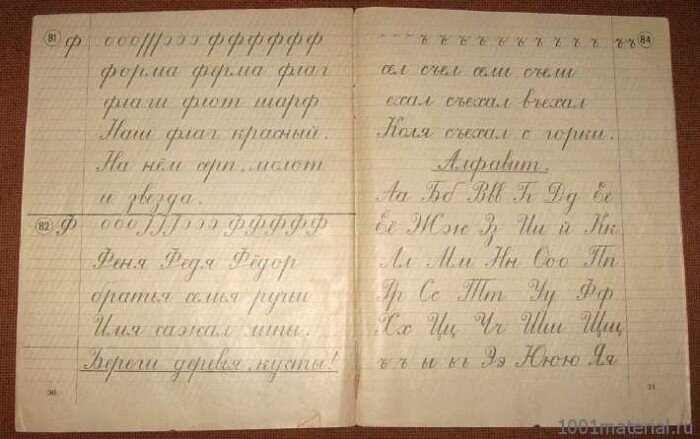 81 ф ооо ллл эээ фффффф
форма фирма флаг
флаги флот шарф
Наш флаг красный.
На нём серп, молот
и звезда.
82 Ф ооо эээ ффффф
Феня Федя Фёдор
братья семья ручьи
Илья сажал липы.
Береги деревья, кусты!
30
ъ ъ ъ ъ ъ ъ ъ ъ ъ ъ ъ ъ ъ 84
сел съел сели съели
ехал съехал въехал
Коля съехал с горки.
Алфавит.
Аа Бб Ввв Гг Дд Ее
Ёё Жж Зз Ии й Кк
Лл Мм Нн Ооо Пп
Рр Сс Тт Уу Фф
Хх Цц Чч Шш Щщ
ъ ъ ы ь ь Ээ Ююю Яя
31
1001material.ru